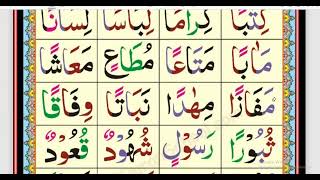 كِتٰبًا كِرَامًا لِبَاسًا لِسَانًا
مَاٰبًا مَتَاعًا مُطَاعٍ مَعَاشًا
مَفَازًا مِهٰدًا نَبَاتًا وِفَاقًا
ثُبُورًا رَسُوْلٍ شُهُودٌ قُعُودٌ